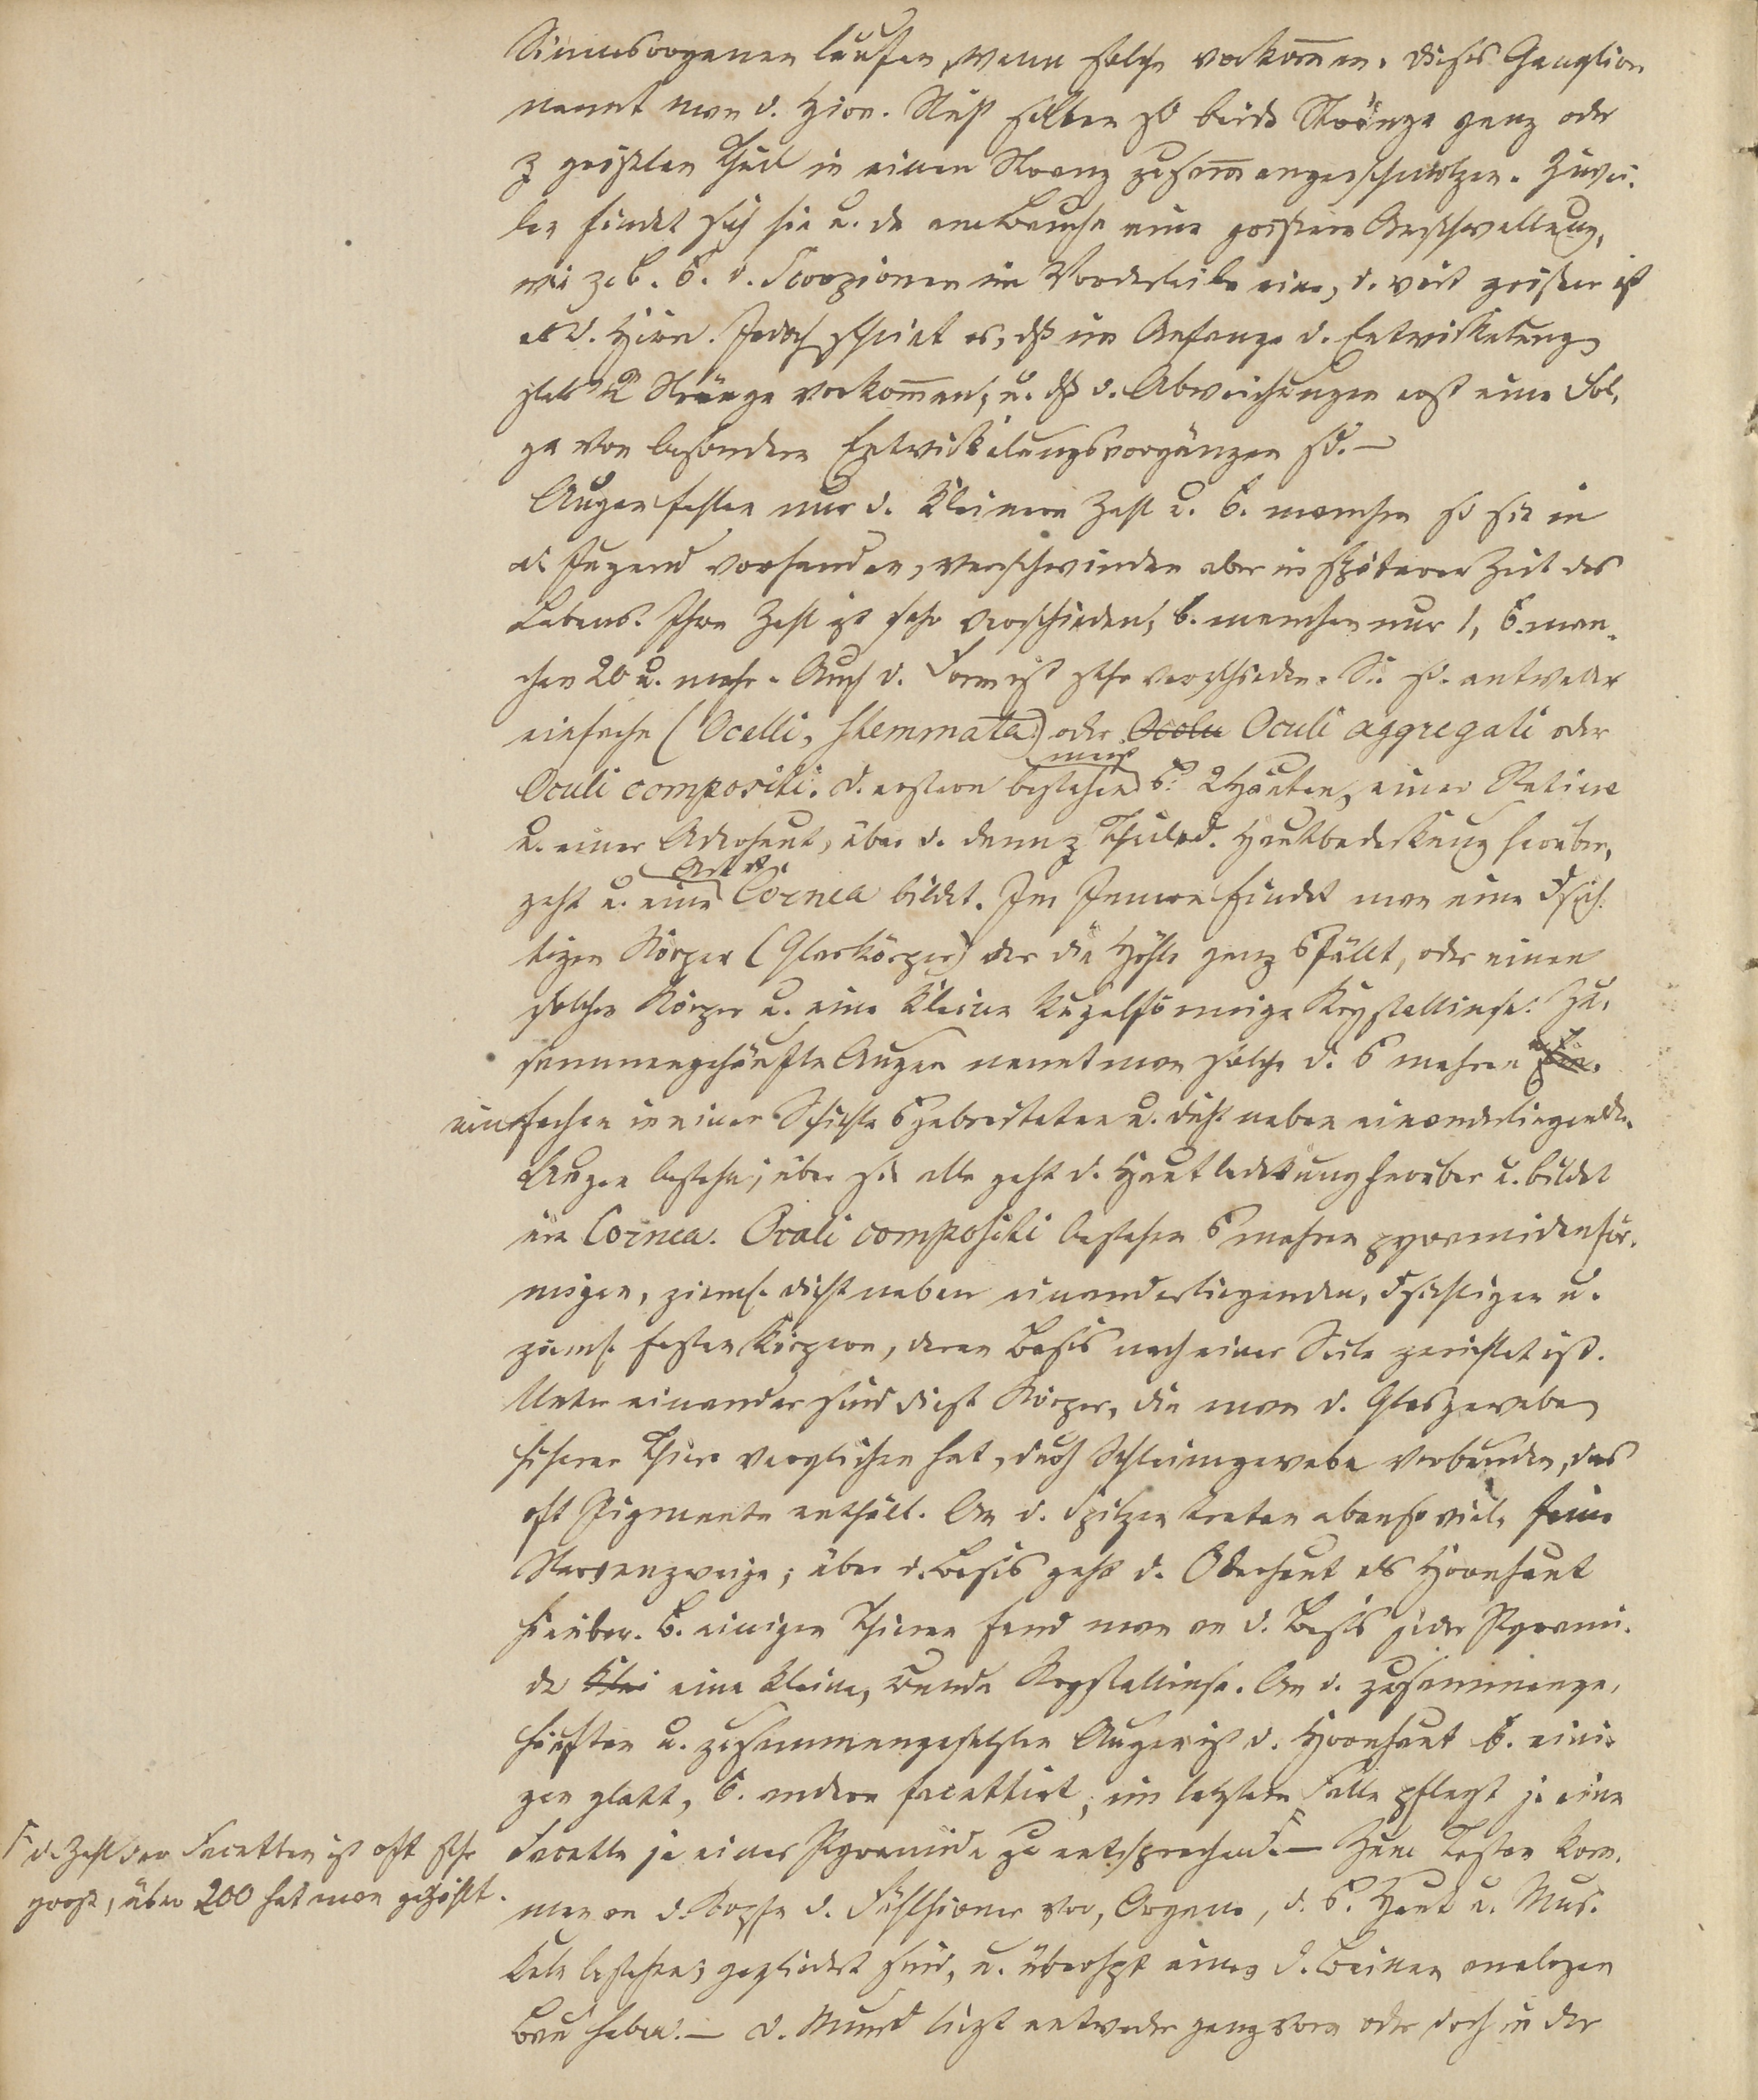 Sinnesorganen laufen, wenn solche vorkom̅en. Dieses Ganglion
nennt man d. Hirn. Nicht selten sd beide Stränge ganz oder
z größten Theil in einen Strang zusam̅engeschmolzen. Zuwei-
len findet sich hie u. da am Bauche eine größere Anschwellung,
wie z. b. b. d. Scorpionen im Vorderleibe eine, d. weit größer ist
als d. Hirn. Jedoch scheint es, dß im Anfange d. Entwickelung
stets 2 Stränge vorkom̅en, u. dß d. Abweichungen erst eine Fol-
ge von besondern Entwickelungsvorgängen sd. —
Augen fehlen nur d. kleinern Zahl u. b. manchen sd sie in
d. Jugend vorhanden, verschwinden aber in späterer Zeit des
Lebens. Ihre Zahl ist sehr verschieden, b. manchen nur 1, b. man-
chen 20 u. mehr. Auch d. Form ist sehr verschieden. Sie sd. entweder
einfache (Ocelli, Stemmata) oder Oculi aggregati oder
Oculi compositi. d. erstern bestehen meist 2 Häuten, einer Retina
u. einer Aderhaut, über d. dann z Theil d. Hautbedeckung herüber-
geht u. eine Art v. Cornea bildet. Im Innern findet man einen dsich-
tigen Körper (Glaskörper) der die Höhle ganz füllt, oder einen
solchen Körper u. eine kleine kugelförmige Krystallinse. Zu-
sammengehäufte Augen nennt man solche d. mehren
einfachen in einer Schichte gebreiteten u. dicht neben einanderliegenden
Augen bestehen; über sie alle geht d. Hautbedeckung herüber u. bildet
eine Cornea. Oculi compositi bestehen mehren pyramidenför-
migen, zieml. dicht neben einanderliegenden, dsichtigen u.
zieml. festen Körpern, deren Basis nach einer Seite gerichtet ist.
Unter einander sind diese Körper, die man d. Glasgewebe
höherer Thiere verglichen hat, durch Schleimgewebe verbunden, das
oft Pigmente enthält. An d. Spitzen treten ebenso viele feine
Nervenzweige; über d. Basis geht d. Oberhaut als Hornhaut
herüber. B. einigen Thieren fand man an d. Basis jeder Pyrami-
de eine kleine, runde Krystallinse. An d. zusammenge-
häuften u. zusammengesetzten Augen ist d. Hornhaut b. eini-
gen glatt, b. andern facettirt, im letztern Falle pflegt je eine
Facette je einer Pyramide zu entsprechen. — Zum Tasten kom-
men am d. Kopfe d. Fühlhörner vor, Organe, d. Haut u. Mus-
keln bestehen, gegliedert sind, u. überhpt einen d. Beinen analogen
Bau haben. — d. Mund liegt entweder ganz vorn oder doch in der
d. Zahl der Facetten ist oft sehr
groß, über 200 hat man gezählt.